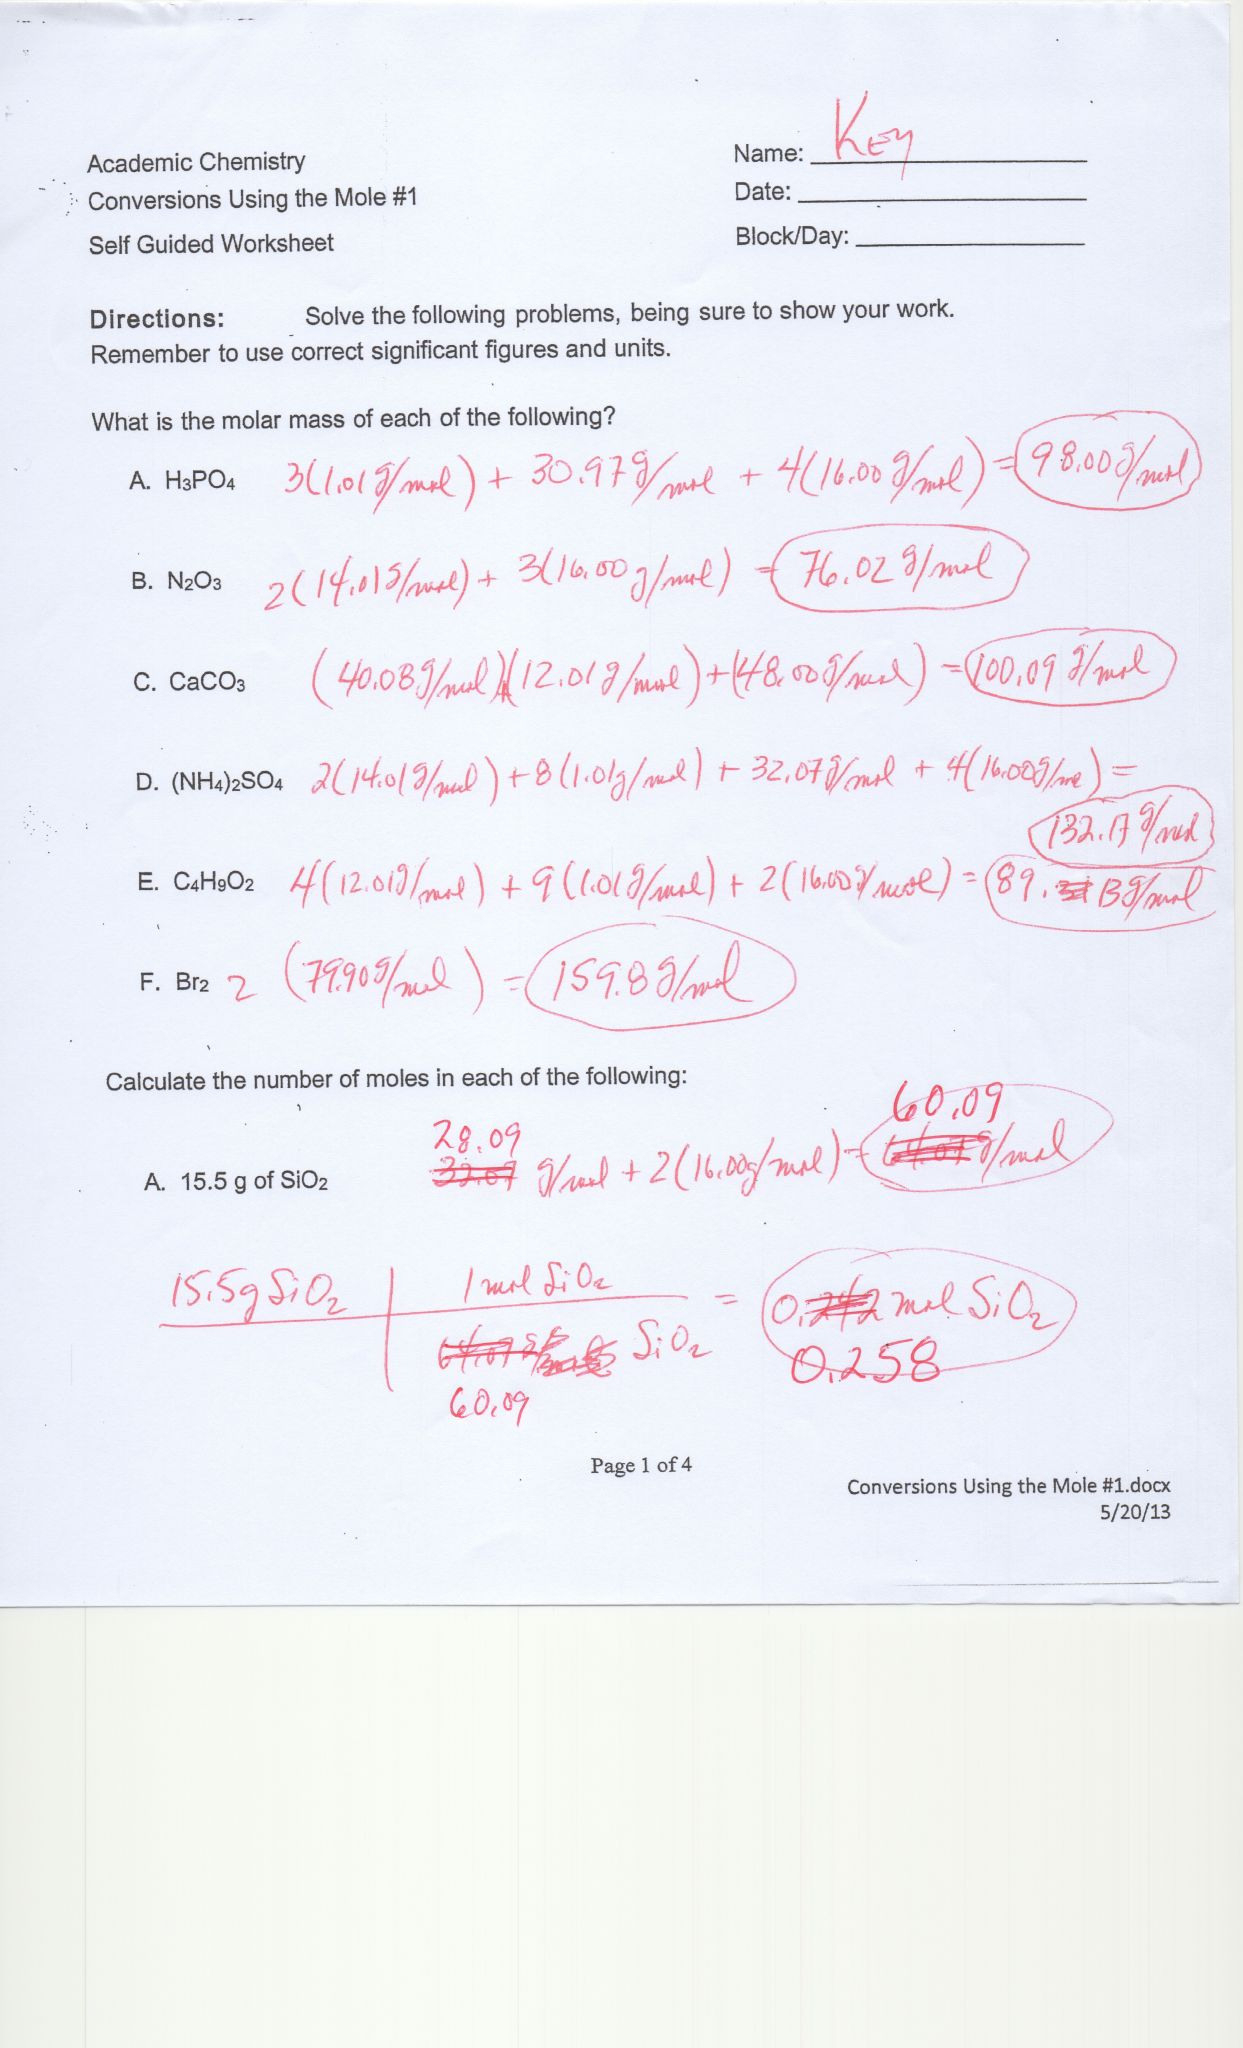 Academic Chemistry
Conversions Using the Mole #1
Self Guided Worksheet
Name: KEY
Date:
Block/Day:
Directions: Solve the following problems, being sure to show your work.
Remember to use correct significant figures and units.
What is the molar mass of each of the following?
A. H3PO4 3(1.01 g/mol) + 30.97 g/mol + 4(16.00 g/mol) = 98.00 g/mol
B. N2O3 2(14.01 g/mol) + 3(16.00 g/mol) = 76.02 g/mol
C. CaCO3 (40.08 g/mol)(12.01 g/mol) + (48.00 g/mol) = 100.09 g/mol
D. (NH4)2SO4 2(14.01 g/mol) + 8(1.01 g/mol) + 32.07 g/mol + 4(16.00 g/mo) =
132.17 g/mol
E. C4H9O2 4(12.01 g/mol) + 9(1.01 g/mol) + 2(16.00 g/mol) = 89.13 g/mol
F. Br2 2 (79.90 g/mol) = 159.8 g/mol
Calculate the number of moles in each of the following:
28.09 60.09
A. 15.5 g of SiO2 g/mol + 2(16.00 g/mol) = g/mol
15.5 g SiO2 | 1 mol SiO2 = 0. mol SiO2
SiO2 0.258
60.09
Page 1 of 4
Conversions Using the Mole #1.docx
5/20/13